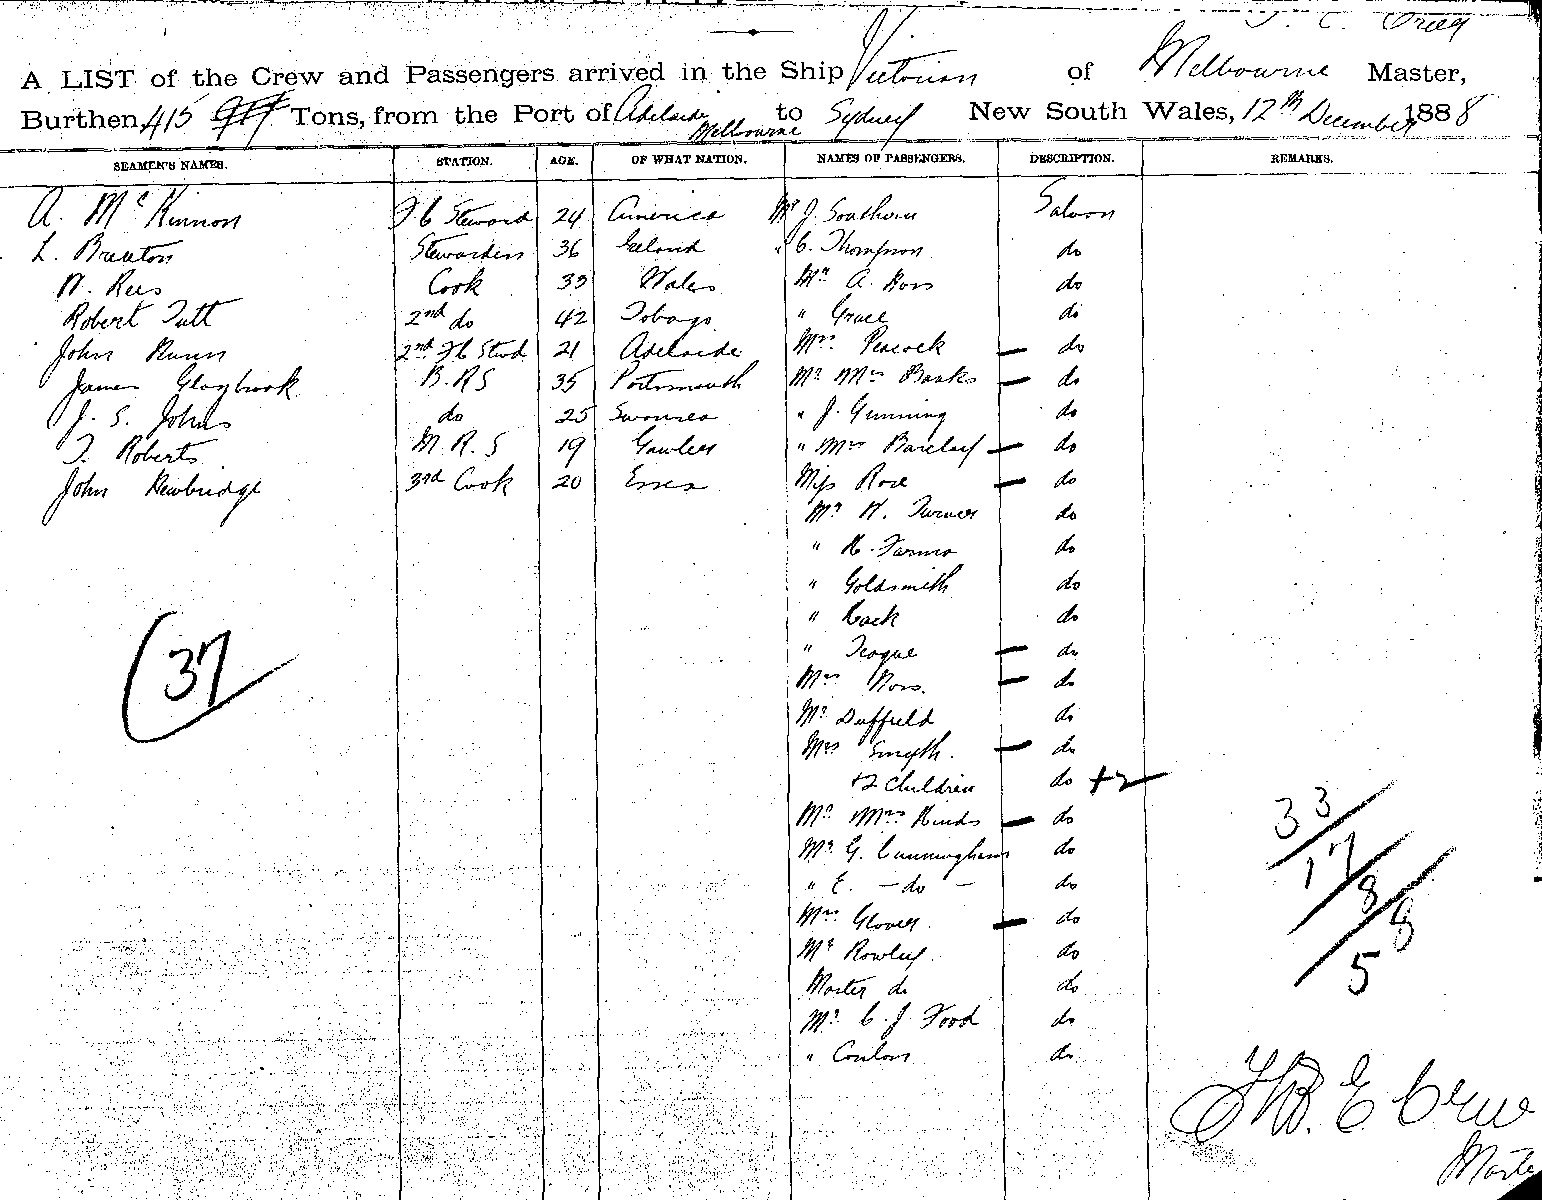 A LIST of the Crew and Passengers arrived in the Ship Victorian of Melbourne Master,
Burthen, 415 Tons, from the Port of Adelaide Melbourne to Sydney New South Wales, 12th December 1888
SEAMEN'S NAMES. STATION. AGE. OF WHAT NATION. NAMES OF PASSENGERS. DESCRIPTION. REMARKS.
A. McKinnon F C Steward 24 America Mr J. Southern Saloon
L. Breaton Stewardess 36 Ireland " C. Thompson do
W. Rees Cook 33 Wales Mr A. Ross do
Robert Tutt 2nd do 42 Tobago " Grace do
John Runn 2nd F C Stwd 21 Adelaide Mrs Peacock — do
James Glaybrook B.R.S 35 Portsmouth Mr Mrs Banks — do
J. S. Johns do 25 Swansea " J. Gunning do
T. Roberts M.R.S 19 Gawler " Mrs Barclay — do
John Newbridge 3rd Cook 20 Essex Miss Rose — do
Mr W. Turner do
" H. do
" Goldsmith do
" Hack do
" Teague — do
Mrs Ross. — do
Mr Duffield do
Mrs Smyth. — do
+2 Children do +2
Mr Mrs Hinds — do
Mr G. Cunningham do
" E. — do — do
Mrs Glover — do
Mr Rowley do
Master do do
Mr C. J. Food do
" Coulson do
37
33
17
8
8
5
Master